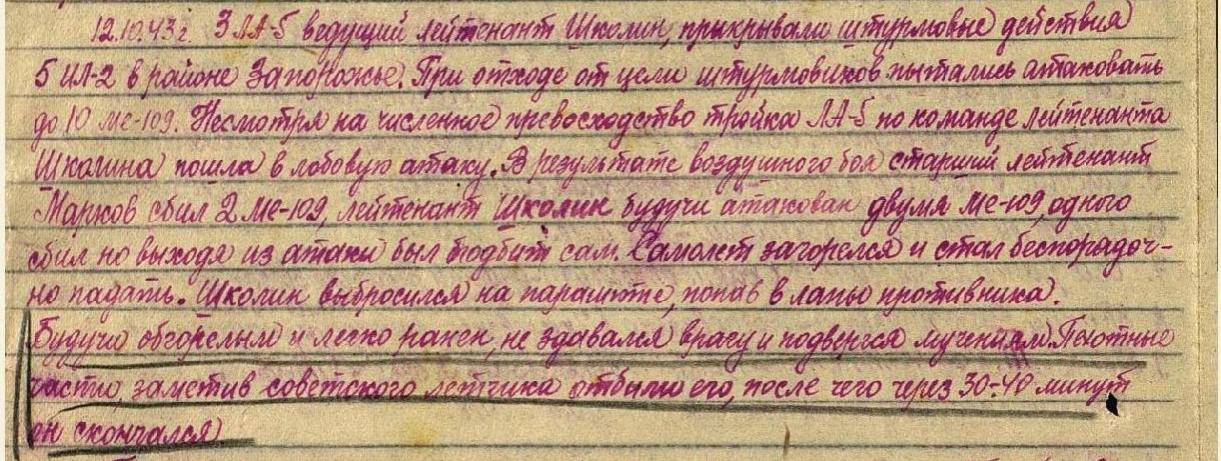 12.10.43г. 3 ЛА-5 ведущий лейтенант Школин, прикрывали штурмовые действия
5 ИЛ-2 в районе Запорожье. При отходе от цели штурмовиков пытались атаковать
до 10 ме-109. Несмотря на численное превосходство тройка ЛА-5 по команде лейтенанта
Школина пошла в лобовую атаку. В результате воздушного боя старший лейтенант
Марков сбил 2 ме-109, лейтенант Школин будучи атакован двумя ме-109, одного
сбил но выходя из атаки был подбит сам. Самолет загорелся и стал беспорядоч-
но падать. Школин выбросился на парашюте, попав в лапы противника.
Будучи обгорелым и легко ранен, не здавался врагу и подвергся мучениям. Пехотные
части, заметив советского летчика отбили его, после чего через 30-40 минут
он скончался